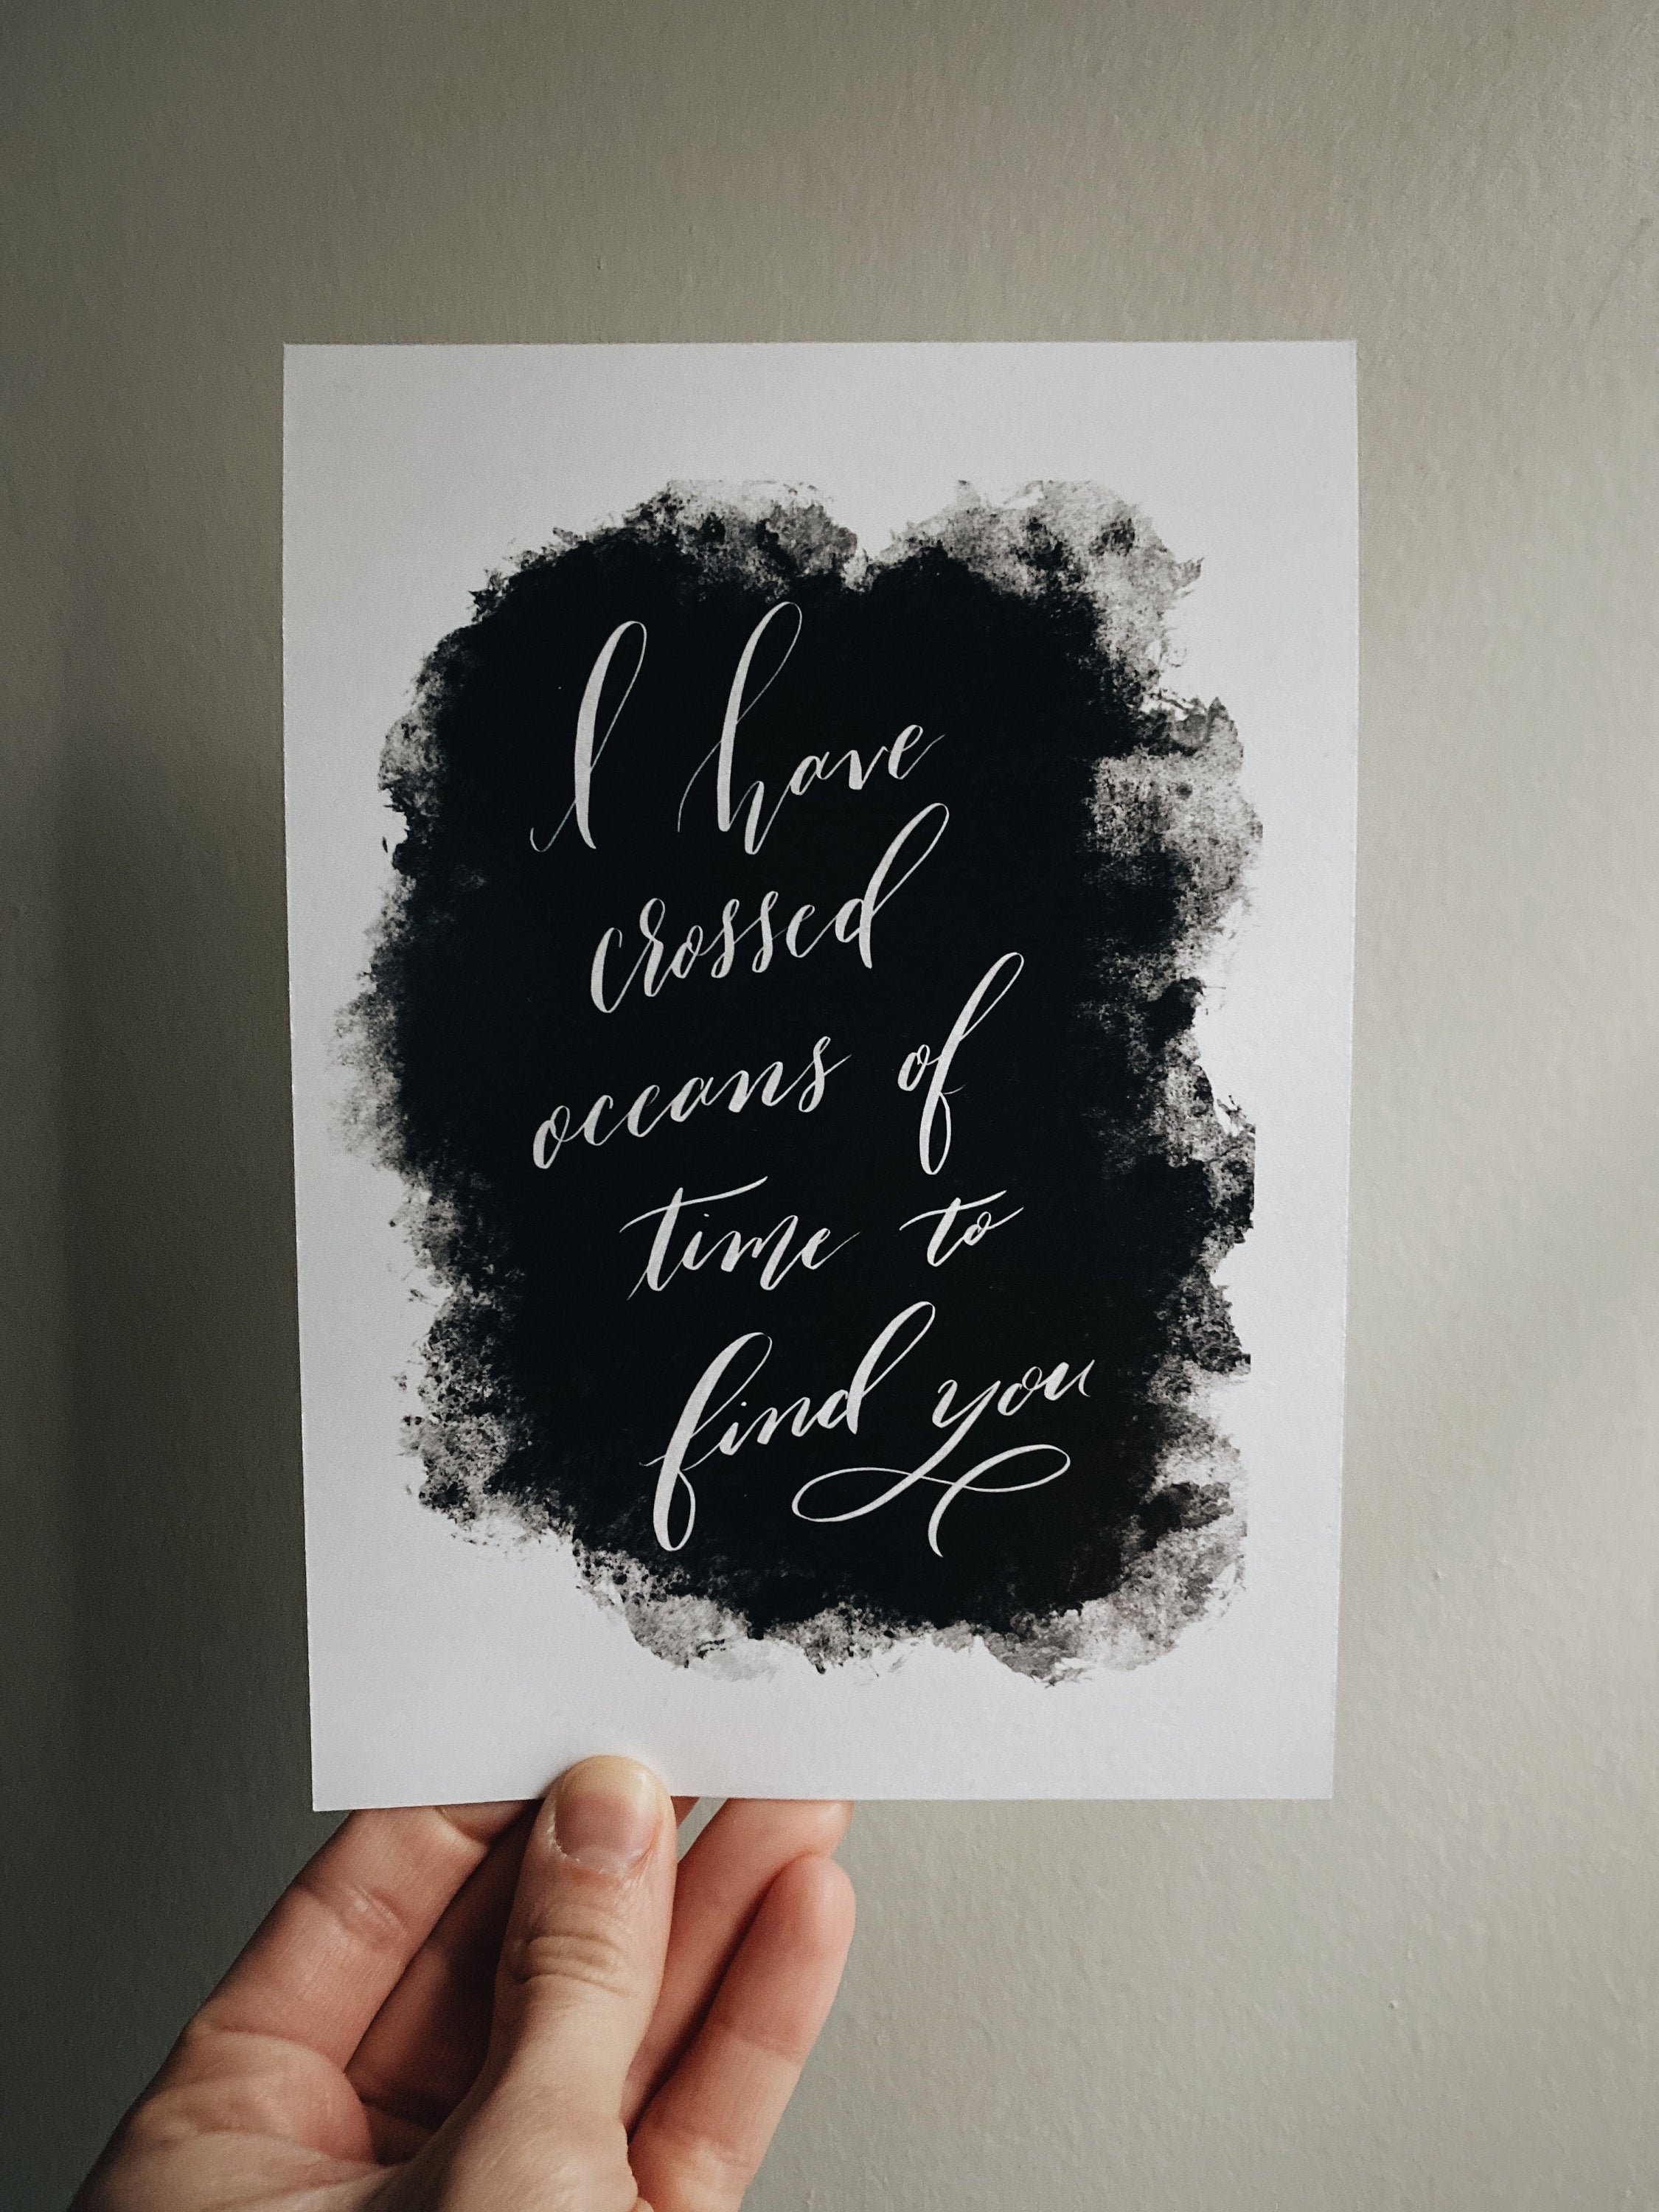 I have
crossed
oceans of
time to
find you